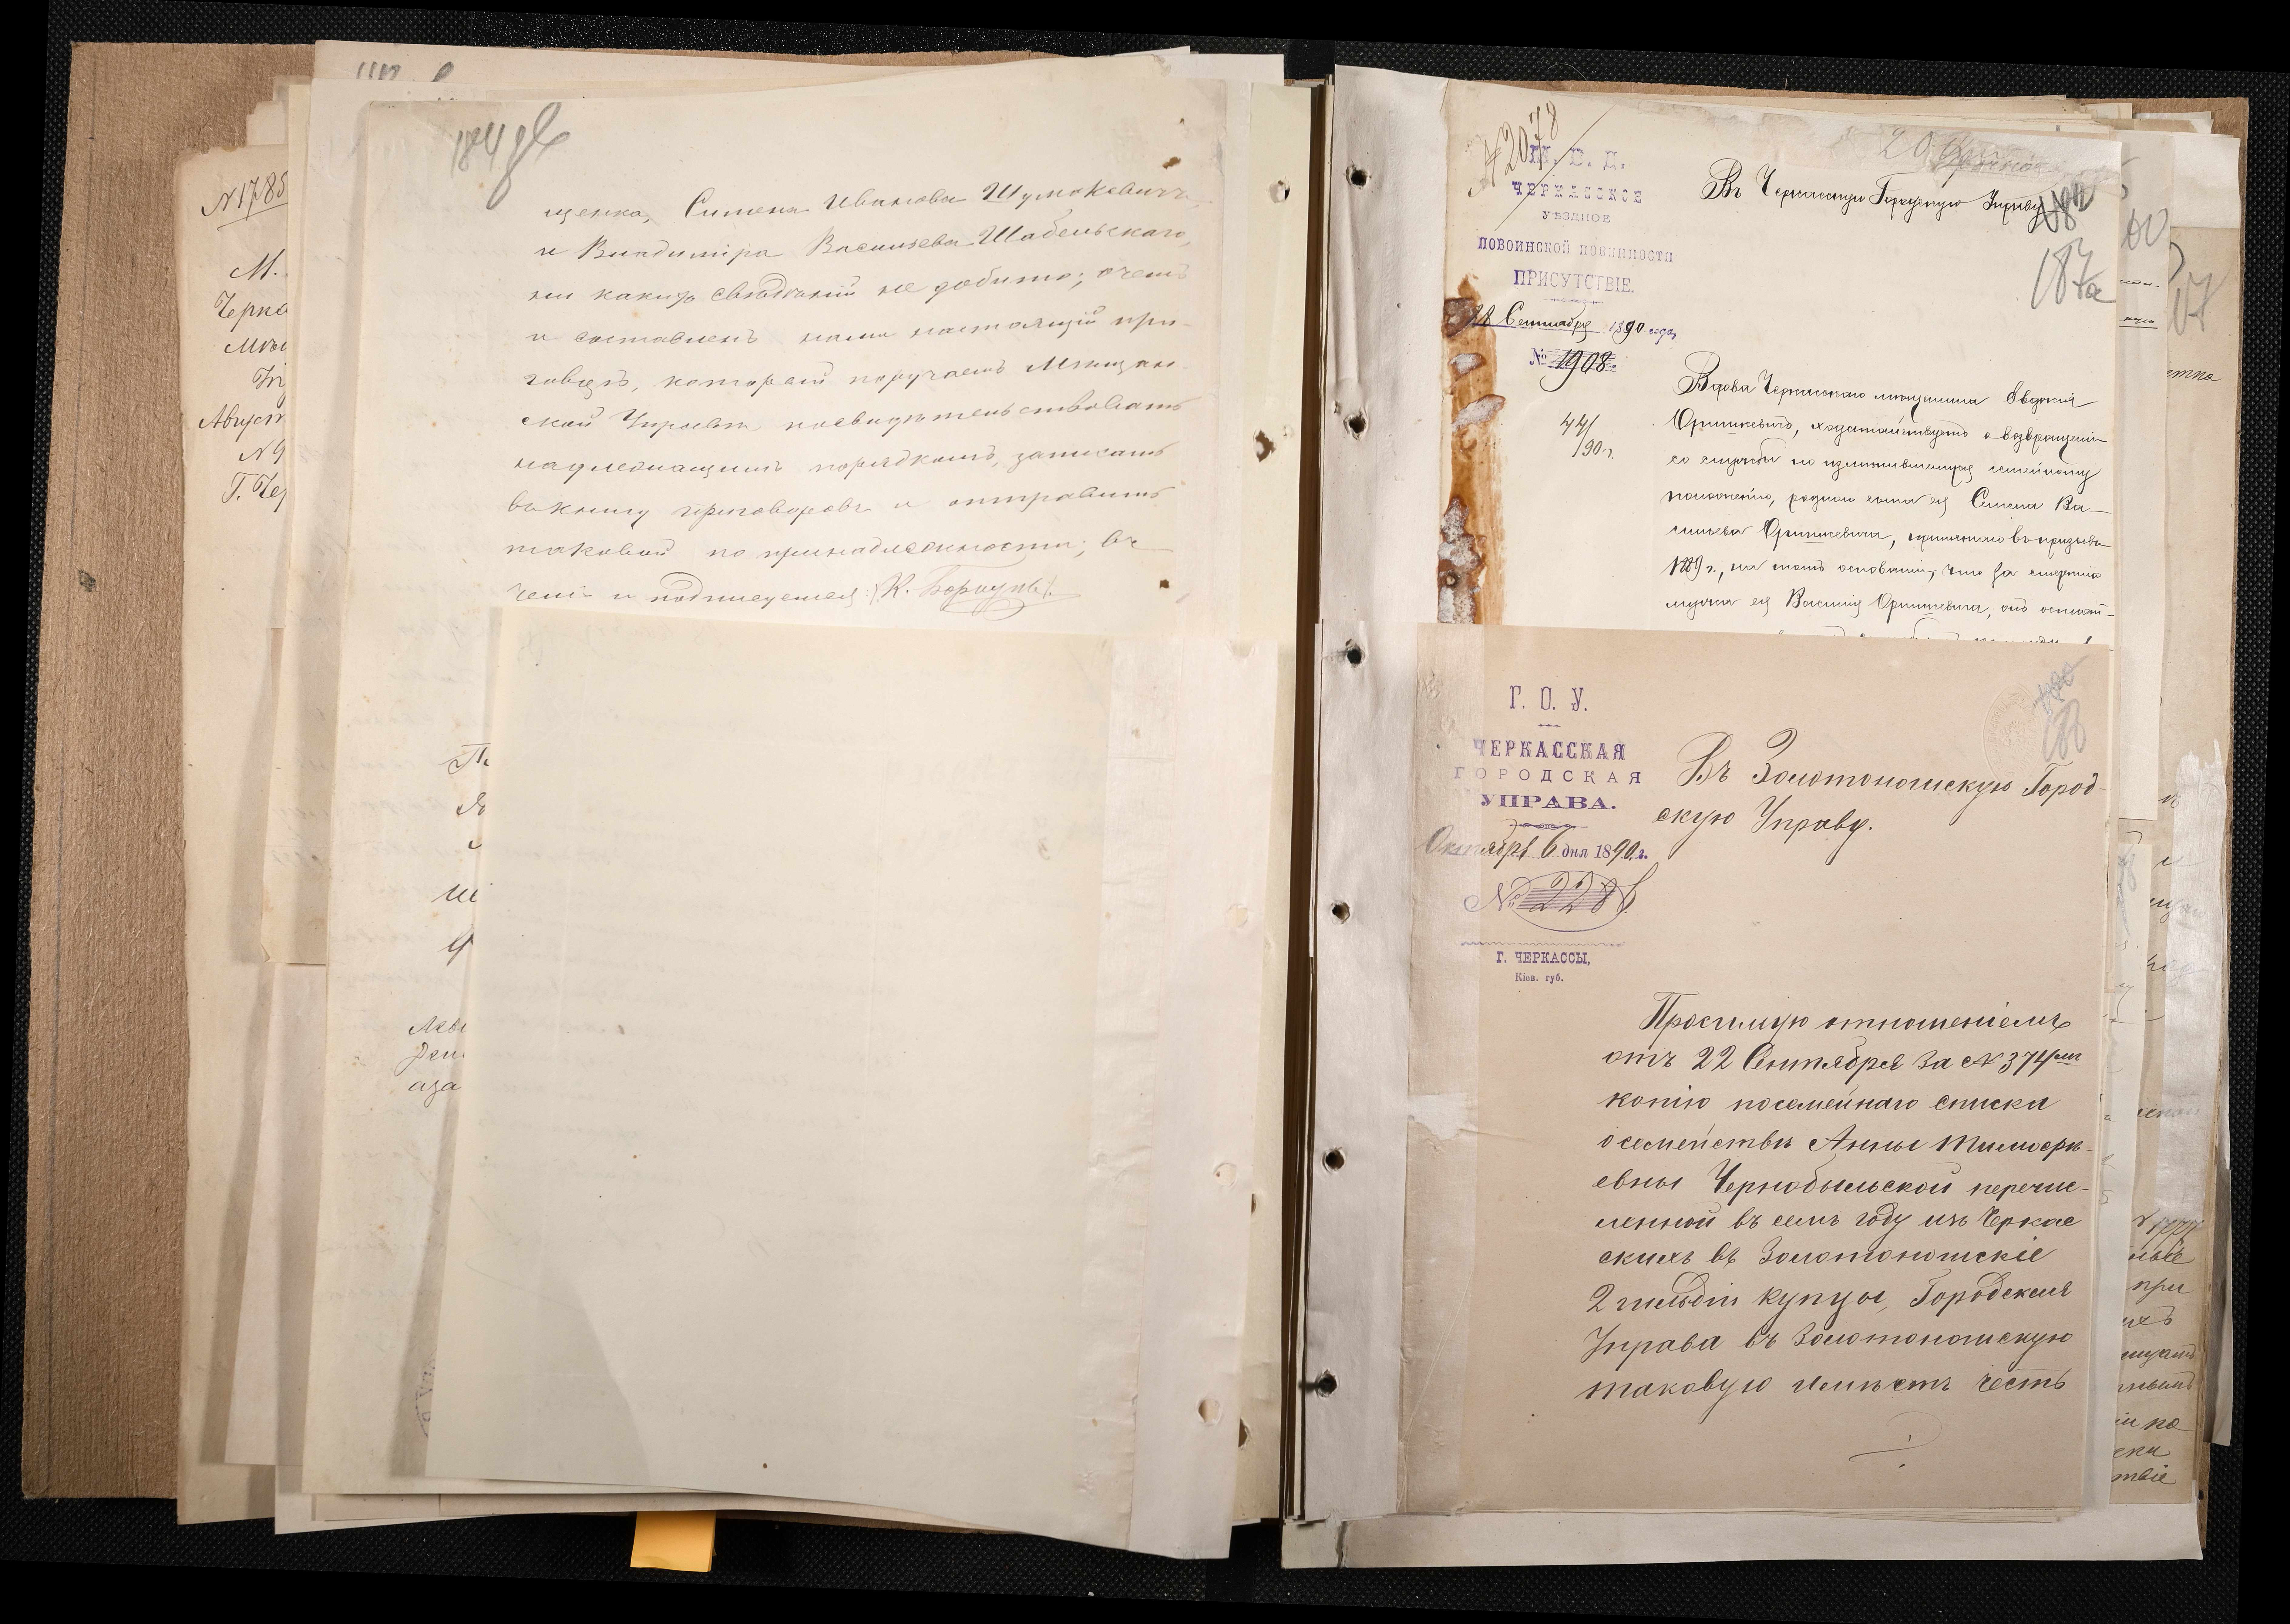 184 об
щенка, Симена Иванова Шумокевича,
и Владиміра Васильева Шабельскаго,
ни какихъ свѣдѣній не добыто; о чемъ
и составленъ нами настоящій при-
говоръ, который поручаемъ Мѣщан-
ской Управѣ, посвидѣтельствовать
надлежащимъ порядкомъ, записать
въ книгу приговоровъ и отправить
таковой по принадлежности, въ
чемъ и подписуемся
N1785
М.
Черка
Мѣщ
Август
N9
Г. Чер
№2078
М. В. Д.
ЧЕРКАССКОЕ
УѢЗДНОЕ
ПОВОИНСКОЙ ПОВИННОСТИ
ПРИСУТСТВІЕ.
28 Сентября 1890 года
№ 1908
44/
190 г.
Въ Черкасскую Городскую Управу
187а
Вдова Черкасскаго мѣщанина Евдокія
Оришкевичъ, ходатайствуетъ о возвращеніи
со службы по измѣнившемуся семейному
положенію, роднаго сына ея Семена Ва-
сильева Оришкевича, принятаго въ призывъ
1889 г., на томъ основаніи, что за смертію
мужа ея Василія Оришкевича, онъ остает-
Г. О. У.
ЧЕРКАССКАЯ
ГОРОДСКАЯ
УПРАВА.
Октября 6 дня 1890 г.
№ 2286
Г. ЧЕРКАССЫ,
Кіев. губ.
188
Въ Золотоношскую Город-
скую Управу.
Просимую отношеніемъ
отъ 22 Сентября за N 374мъ
копію посемейнаго списка
о семействѣ Анны Тимоѳе-
евны Чернобыльской перечис-
ленной въ семъ году изъ Черкас
скихъ въ Золотоношскіе
2 гильдіи купцы, Городская
Управа въ Золотоношскую
таковую имѣетъ честь